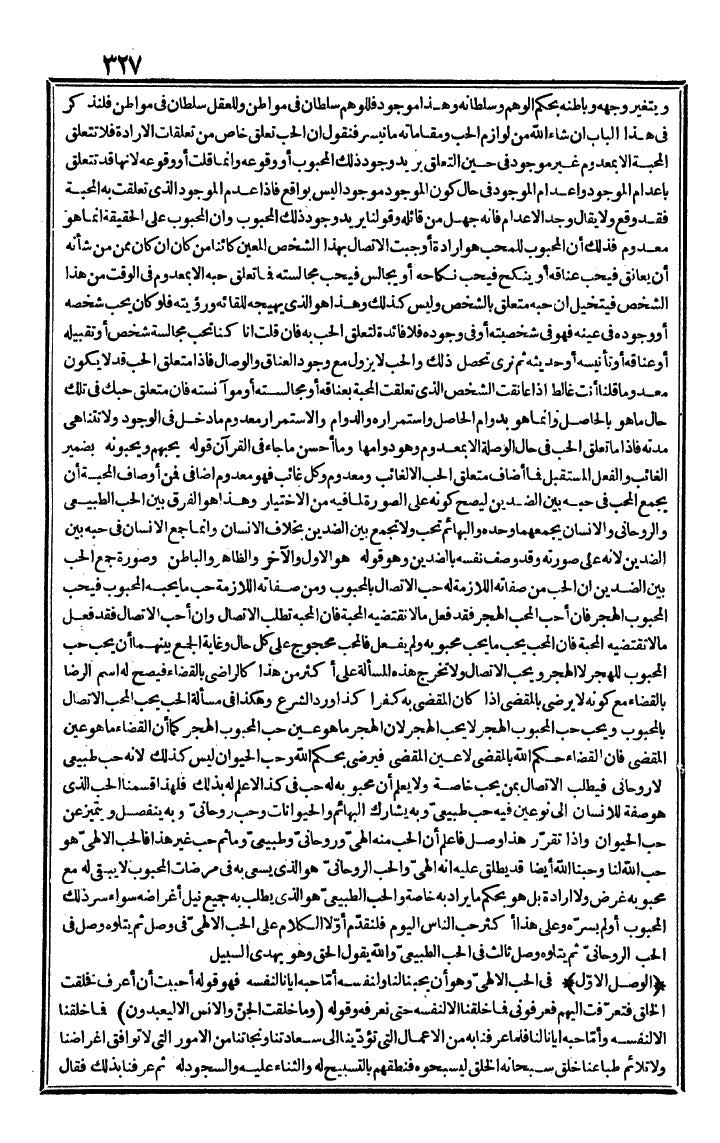 ٣٢٧
ويتغير وجهه وباطنه بحكم الوهم وسلطانه وهذا موجود فللوهم سلطان فى مواطن وللعقل سلطان فى مواطن فلنذكر
فى هذا الباب ان شاء الله من لوازم الحب ومقاماته ما تيسر فنقول ان الحب تعلق خاص من تعلقات الارادة فلا تتعلق
المحبة الا بمعدوم غير موجود فى حين التعلق يريد وجود ذلك المحبوب أو وقوعه وانما قلت أو وقوعه لانها قد تتعلق
باعدام الموجود واعدام الموجود فى حال كون الموجود موجود اليس بواقع فاذا عدم الموجود الذى تعلقت به المحبة
فقد وقع ولا يقال وجد الاعدام فانه جهل من قائله وقولنا يريد وجود ذلك المحبوب وان المحبوب على الحقيقة انما هو
معدوم فذلك أن المحبوب للمحب هو ارادة أوجبت الاتصال بهذا الشخص المعين كائنا من كان ان كان ممن من شأنه
أن يعانق فيحب عناقه أو ينكح فيحب نكاحه أو يجالس فيحب مجالسته فما تعلق حبه الا بمعدوم فى الوقت من هذا
الشخص فيتخيل ان حبه متعلق بالشخص وليس كذلك وهذا هو الذى يهيجه للقائه ورؤيته فلو كان يحب شخصه
أو وجوده فى عينه فهو فى شخصيته أو فى وجوده فلا فائدة لتعلق الحب به فان قلت انا كنا نحب مجالسة شخص أو تقبيله
أو عناقه أو تأنيسه أو حديثه ثم نرى تحصل ذلك والحب لا يزول مع وجود العناق والوصال فاذا متعلق الحب قد لا يكون
معدوما قلنا أنت غالط اذا عانقت الشخص الذى تعلقت المحبة بعناقه أو مجالسته أو مؤانسته فان متعلق حبك فى تلك
حال ما هو بالحاصل وانما هو بدوام الحاصل واستمراره والدوام والاستمرار معدوم ما دخل فى الوجود ولا تتناهى
مدته فاذا ما تعلق الحب فى حال الوصلة الا بمعدوم وهو دوامها وما أحسن ما جاء فى القرآن قوله يحبهم ويحبونه بضمير
الغائب والفعل المستقبل فما أضاف متعلق الحب الا لغائب ومعدوم وكل غائب فهو معدوم اضافى فمن أوصاف المحبة أن
يجمع المحب فى حبه بين الضدين ليصح كونه على الصورة لما فيه من الاختيار وهذا هو الفرق بين الحب الطبيعى
والروحانى والانسان يجمعهما وحده والبهائم تحب ولا تجمع بين الضدين بخلاف الانسان وانما جمع الانسان فى حبه بين
الضدين لانه على صورته وقد وصف نفسه بالضدين وهو قوله هو الاول والآخر والظاهر والباطن وصورة جمع الحب
بين الضدين ان الحب من صفاته اللازمة له حب الاتصال بالمحبوب ومن صفاته اللازمة حب ما يحبه المحبوب فيحب
المحبوب الهجر فان أحب المحب الهجر فقد فعل مالا تقتضيه المحبة فان المحبة تطلب الاتصال وان أحب الاتصال فقد فعل
مالا تقتضيه المحبة فان المحب يحب ما يحب محبوبه ولم يفعل فالمحب محجوج على كل حال وغاية الجمع بينهما أن يحب حب
المحبوب للهجر لا الهجر ويحب الاتصال ولا تخرج هذه المسألة على أكثر من هذا كالراضى بالقضاء فيصح له اسم الرضا
بالقضاء مع كونه لا يرضى بالمقضى اذا كان المقضى به كفرا كذا ورد الشرع وهكذا فى مسألة الحب يحب المحب الاتصال
بالمحبوب ويحب حب المحبوب الهجر لا يحب الهجر لان الهجر ما هو عين حب المحبوب الهجر كما أن القضاء ما هو عين
المقضى فان القضاء حكم الله بالمقضى لا عين المقضى فيرضى بحكم الله وحب الحيوان ليس كذلك لانه حب طبيعى
لا روحانى فيطلب الاتصال بمن يحب خاصة ولا يعلم أن محبوبه له حب فى كذا لا علم له بذلك فلهذا قسمنا الحب الذى
هو صفة للانسان الى نوعين فيه حب طبيعى وبه يشارك البهائم والحيوانات وحب روحانى وبه ينفصل ويتميز عن
حب الحيوان واذا تقرر هذا وصل فاعلم أن الحب منه الهى وروحانى وطبيعى وما ثم حب غير هذا فالحب الالهى هو
حب الله لنا وحبنا الله أيضا قد يطلق عليه انه الهى والحب الروحانى هو الذى يسعى به فى مرضات المحبوب لا يبقى له مع
محبوبه غرض ولا ارادة بل هو بحكم ما يراد به خاصة والحب الطبيعى هو الذى يطلب به جميع نيل أغراضه سواء سر ذلك
المحبوب أو لم يسره وعلى هذا أكثر حب الناس اليوم فلنقدم أولا الكلام على الحب الالهى فى وصل ثم يتلوه وصل فى
الحب الروحانى ثم يتلوه وصل ثالث فى الحب الطبيعى والله يقول الحق وهو يهدى السبيل
﴿الوصل الاول﴾ فى الحب الالهى وهو أن يحبنا لنا ولنفسه أما حبه ايانا لنفسه فهو قوله أحببت أن أعرف فخلقت
الخلق فتعرفت اليهم فعرفونى فما خلقنا الا لنفسه حتى نعرفه وقوله (وما خلقت الجن والانس الا ليعبدون) فما خلقنا
الا لنفسه وأما حبه ايانا لنا فلما عرفنا به من الاعمال التى تؤدينا الى سعادتنا ونجاتنا من الامور التى لا توافق اغراضنا
ولا تلائم طباعنا خلق سبحانه الخلق ليسبحوه فنطقهم بالتسبيح له والثناء عليه والسجود له ثم عرفنا بذلك فقال